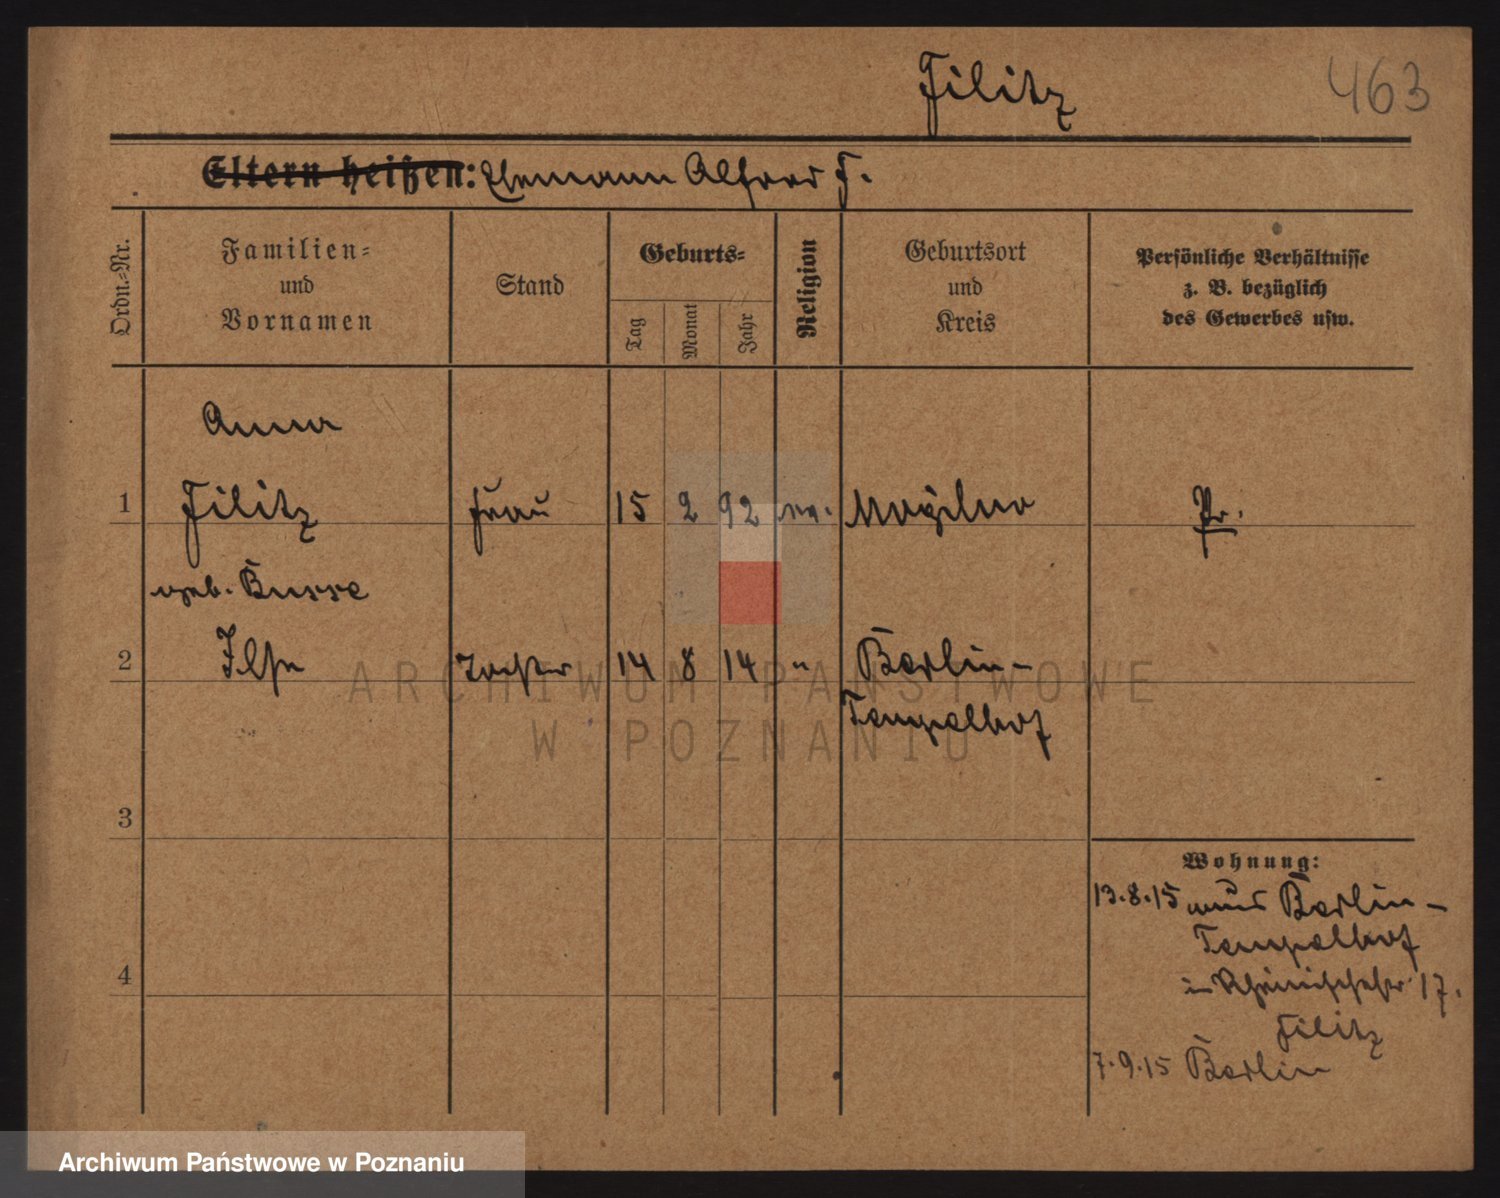 Filitz
463
Eltern heißen: Ehemann Alfred F.
Ordn.-Nr.
Familien-
und
Vornamen
Stand
Geburts-
Tag
Monat
Jahr
Religion
Geburtsort
und
Kreis
Persönliche Verhältnisse
z. B. bezüglich
des Gewerbes usw.
Anna
1 Filitz Frau 15 2 92 ev. Mogilno Pr.
geb. Busse
2 Ilse Tochter 14 8 14 " Berlin-
Tempelhof
3
Wohnung:
13.8.15 aus Berlin-
Tempelhof
4
17.
Filitz
7.9.15 Berlin
ARCHIWUM PAŃSTWOWE
W POZNANIU
Archiwum Państwowe w Poznaniu